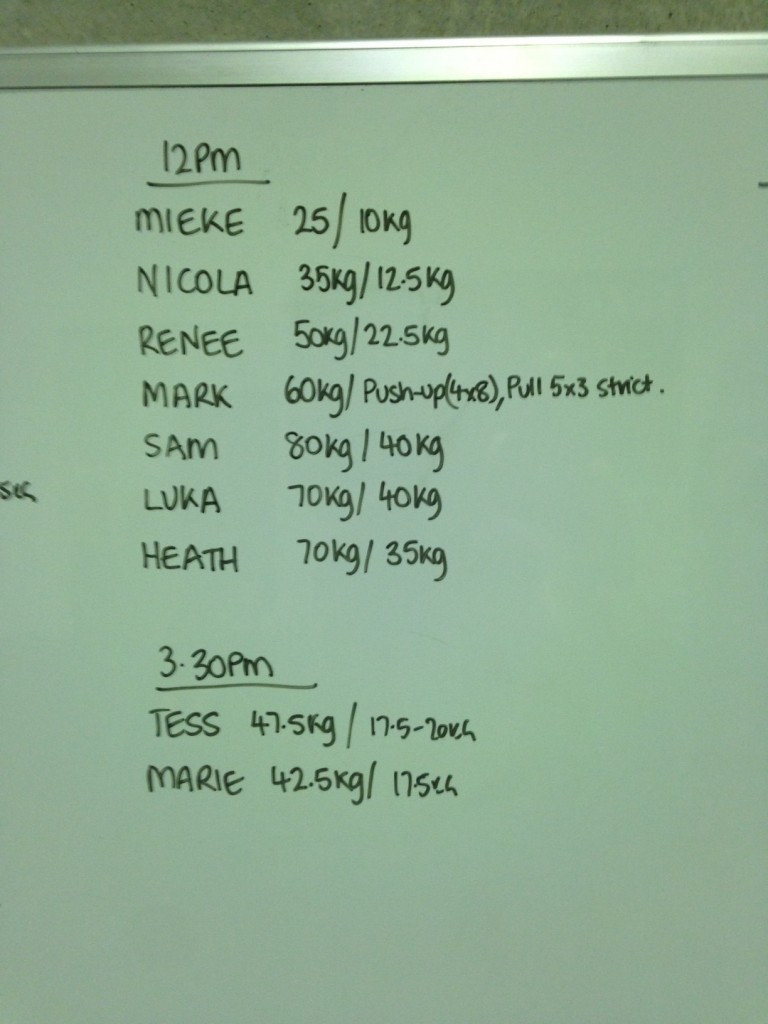 12Pm
MIEKE 25/10kg
NICOLA 35kg/12.5kg
RENEE 50kg/22.5kg
MARK 60kg/ Push-up(4x8), Pull 5x3 strict.
SAM 80kg/40kg
LUKA 70kg/ 40kg
HEATH 70kg/ 35kg
3.30Pm
TESS 47.5kg / 17.5-20KG
MARIE 42.5kg/ 17.5KG